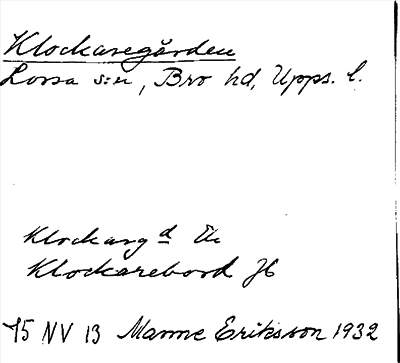 Klockaregården
Lossa s:n, Bro hd, Upps. l.
Klockarg d Ek
Klockarebord JK
75 NV 13 Manne Eriksson 1932